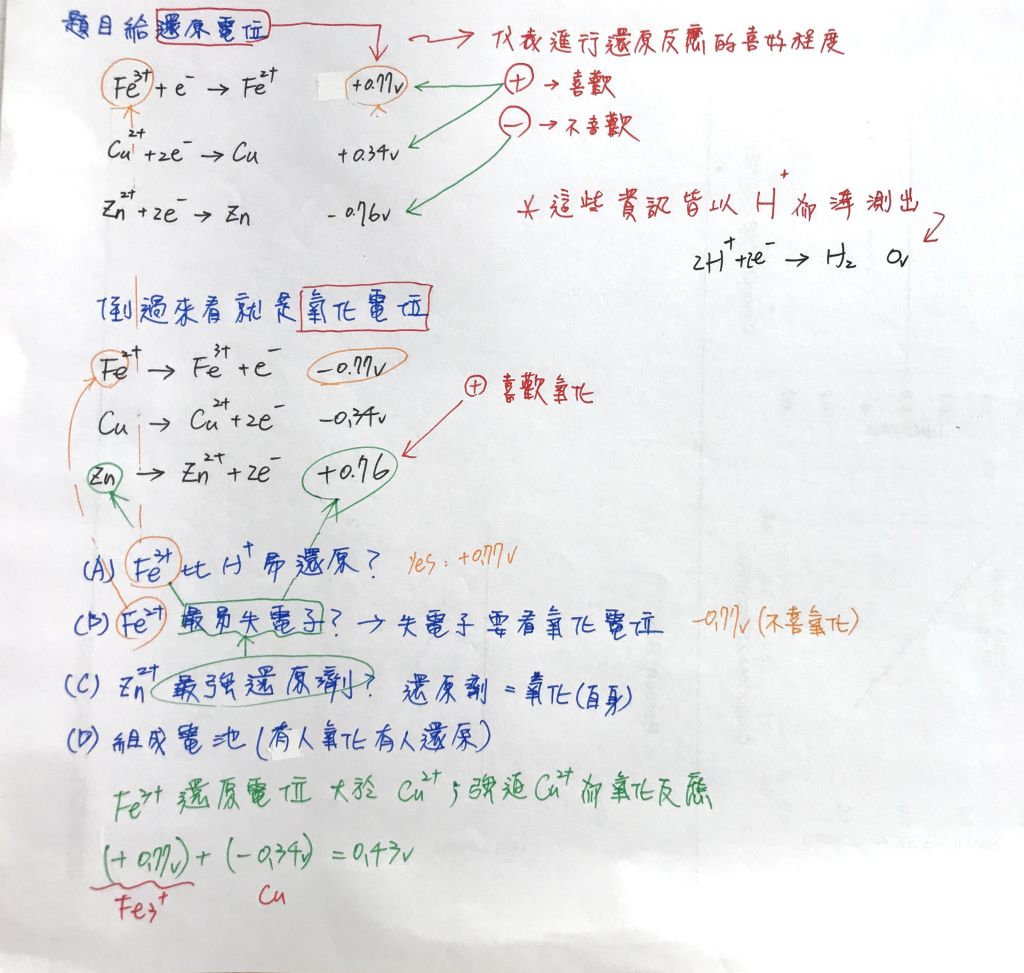 題目給還原電位 代表進行還原反應的喜好程度
Fe³⁺ + e⁻ → Fe²⁺ +0.77v ⊕ → 喜歡
Cu²⁺ + 2e⁻ → Cu +0.34v ⊖ → 不喜歡
Zn²⁺ + 2e⁻ → Zn -0.76v
* 這些資訊皆以 H⁺ 為準測出
2H⁺ + 2e⁻ → H₂ 0v
倒過來看就是氧化電位
Fe²⁺ → Fe³⁺ + e⁻ -0.77v
⊕ 喜歡氧化
Cu → Cu²⁺ + 2e⁻ -0.34v
Zn → Zn²⁺ + 2e⁻ +0.76
(A) Fe³⁺ 比 H⁺ 易還原? Yes: +0.77v
(B) Fe²⁺ 最易失電子? → 失電子要看氧化電位 -0.77v (不喜氧化)
(C) Zn²⁺ 最強還原劑? 還原劑 = 氧化(自身)
(D) 組成電池 (有人氧化有人還原)
Fe³⁺ 還原電位 大於 Cu²⁺ ; 強迫 Cu²⁺ 做氧化反應
(+0.77v) + (-0.34v) = 0.43v
Fe3⁺ Cu